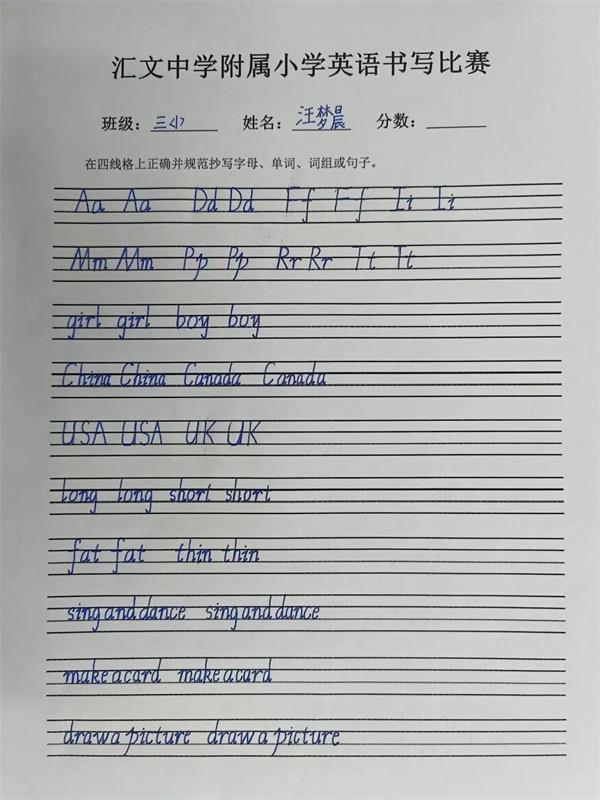 汇文中学附属小学英语书写比赛
班级：三小 姓名：汪梦晨 分数：
在四线格上正确并规范抄写字母、单词、词组或句子。
Aa Aa Dd Dd Ff Ff Ii Ii
Mm Mm Pp Pp Rr Rr Tt Tt
girl girl boy boy
China China Canada Canada
USA USA UK UK
long long short short
fat fat thin thin
sing and dance sing and dance
make a card make a card
draw a picture draw a picture